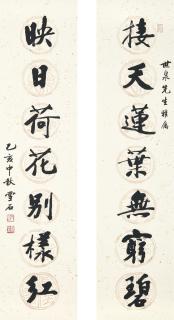 世泉先生雅屬
接天蓮葉無窮碧
映日荷花別樣紅
乙亥中秋